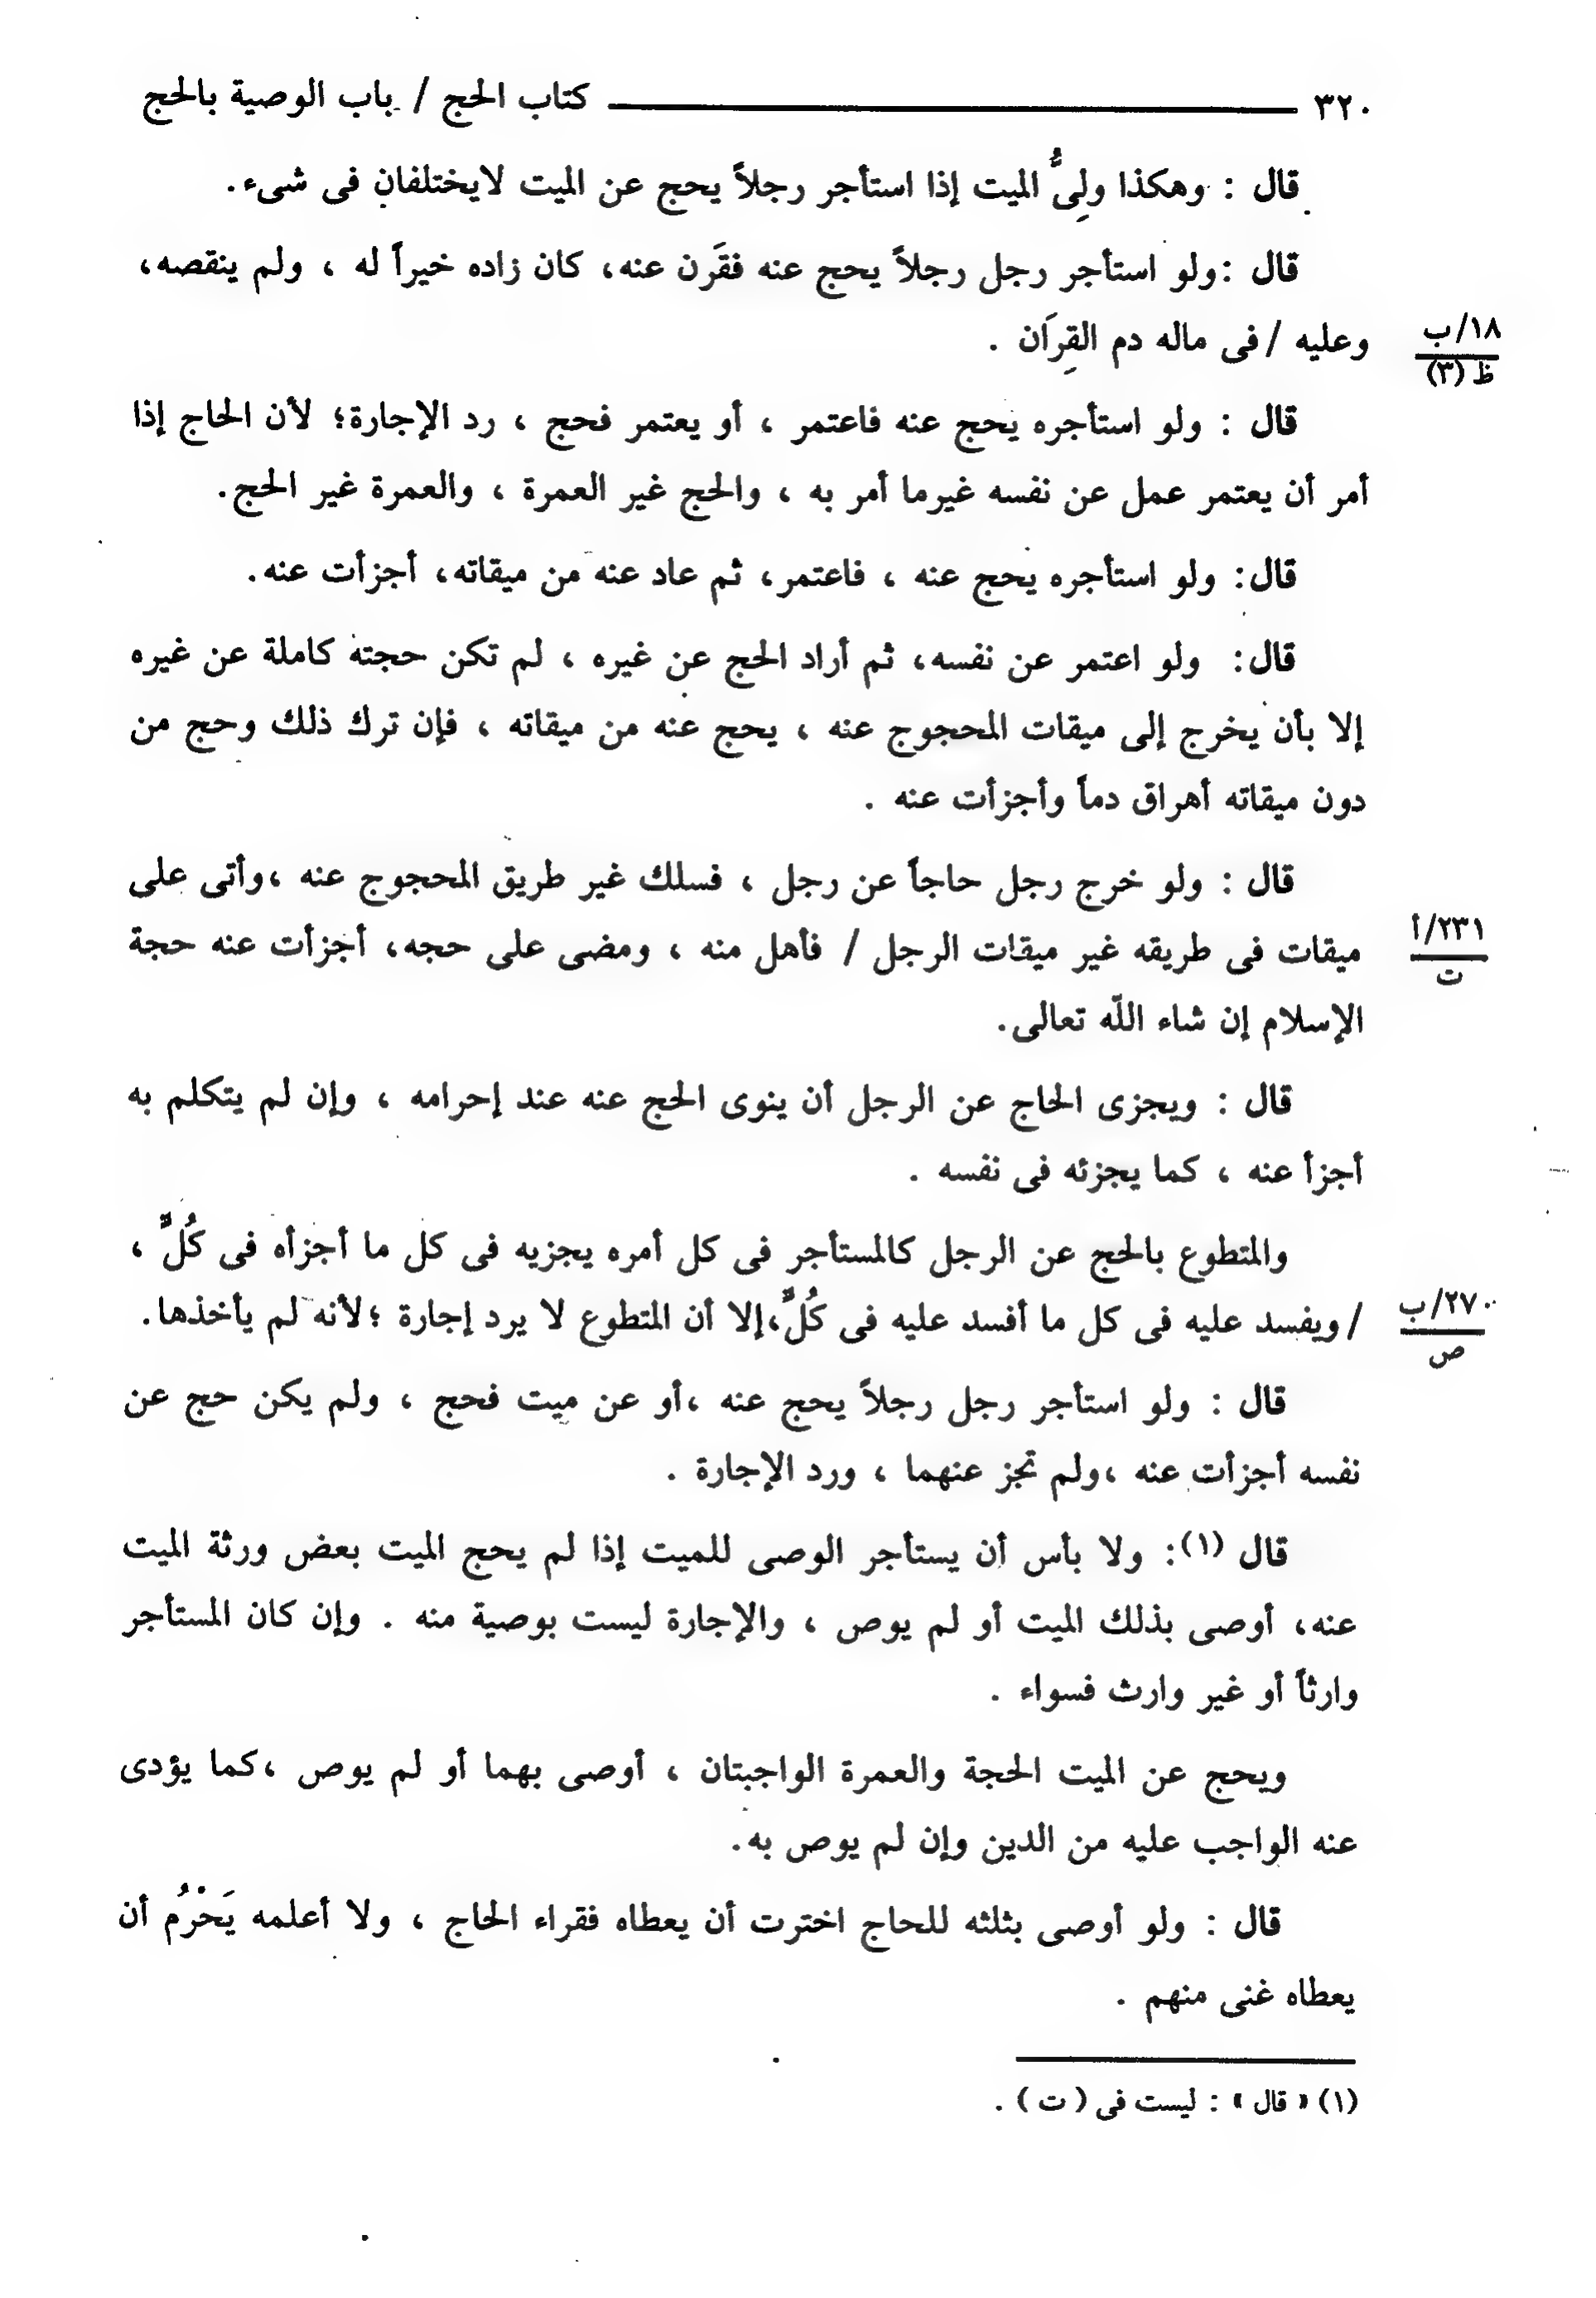 ٣٢٠ كتاب الحج / باب الوصية بالحج
قال : وهكذا ولِىُّ الميت إذا استأجر رجلاً يحج عن الميت لايختلفان فى شىء.
قال :ولو استأجر رجل رجلاً يحج عنه فقَرن عنه، كان زاده خيراً له ، ولم ينقصه،
وعليه / فى ماله دم القِرَان .
١٨/ب
ظ (٣)
قال : ولو استأجره يحج عنه فاعتمر ، أو يعتمر فحج ، رد الإجارة؛ لأن الحاج إذا
أمر أن يعتمر عمل عن نفسه غيرما أمر به ، والحج غير العمرة ، والعمرة غير الحج.
قال: ولو استأجره يحج عنه ، فاعتمر، ثم عاد عنه من ميقاته، أجزأت عنه.
قال: ولو اعتمر عن نفسه، ثم أراد الحج عن غيره ، لم تكن حجته كاملة عن غيره
إلا بأن يخرج إلى ميقات المحجوج عنه ، يحج عنه من ميقاته ، فإن ترك ذلك وحج من
دون ميقاته أهراق دماً وأجزأت عنه .
قال : ولو خرج رجل حاجاً عن رجل ، فسلك غير طريق المحجوج عنه ،وأتى على
ميقات فى طريقه غير ميقات الرجل / فأهل منه ، ومضى على حجه، أجزأت عنه حجة
٢٣١/أ
ت
الإسلام إن شاء الله تعالى.
قال : ويجزى الحاج عن الرجل أن ينوى الحج عنه عند إحرامه ، وإن لم يتكلم به
أجزأ عنه ، كما يجزئه فى نفسه .
والمتطوع بالحج عن الرجل كالمستأجر فى كل أمره يجزيه فى كل ما أجزأه فى كُلٍّ ،
/ ويفسد عليه فى كل ما أفسد عليه فى كُلٍّ،إلا أن المتطوع لا يرد إجارة ؛لأنه لم يأخذها.
٢٧٠/ب
ص
قال : ولو استأجر رجل رجلاً يحج عنه ،أو عن ميت فحج ، ولم يكن حج عن
نفسه أجزأت عنه ،ولم تجز عنهما ، ورد الإجارة .
قال (١): ولا بأس أن يستأجر الوصى للميت إذا لم يحج الميت بعض ورثة الميت
عنه، أوصى بذلك الميت أو لم يوص ، والإجارة ليست بوصية منه . وإن كان المستأجر
وارثاً أو غير وارث فسواء .
ويحج عن الميت الحجة والعمرة الواجبتان ، أوصى بهما أو لم يوص ،كما يؤدى
عنه الواجب عليه من الدين وإن لم يوص به.
قال : ولو أوصى بثلثه للحاج اخترت أن يعطاه فقراء الحاج ، ولا أعلمه يَحْرُم أن
يعطاه غنى منهم .
(١) « قال » : ليست فى ( ت ) .